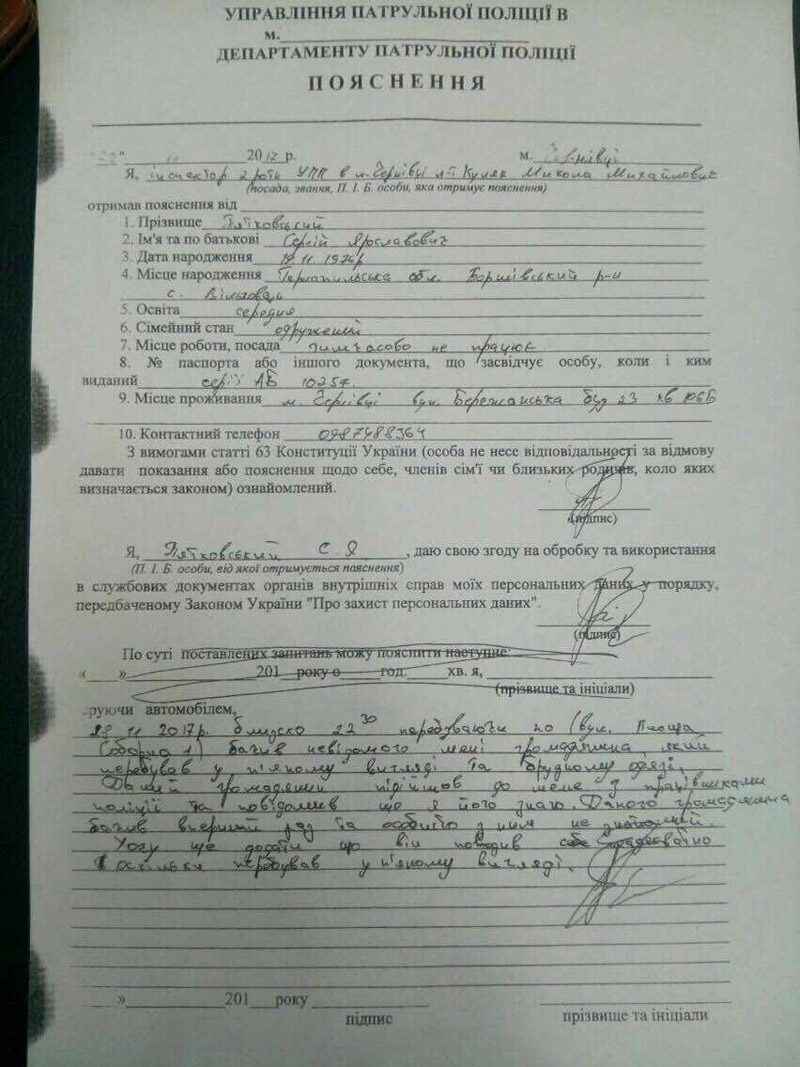 УПРАВЛІННЯ ПАТРУЛЬНОЇ ПОЛІЦІЇ В
м.
ДЕПАРТАМЕНТУ ПАТРУЛЬНОЇ ПОЛІЦІЇ
ПОЯСНЕННЯ
" 11 2017 р. м. Чернівці
Я, інспектор 2 роти УПП в м. Чернівці л-т Куляк Микола Михайлович
(посада, звання, П. І. Б. особи, яка отримує пояснення)
отримав пояснення від
1. Прізвище
2. Ім'я та по батькові Сергій Ярославович
3. Дата народження 11. 197
4. Місце народження Тернопільська обл. Борщівський р-н
с.
5. Освіта середня
6. Сімейний стан одружений
7. Місце роботи, посада тимчасово не працює
8. № паспорта або іншого документа, що засвідчує особу, коли і ким
виданий серії АБ
9. Місце проживання м. Чернівці вул. Бережанська буд 23 кв
10. Контактний телефон 0987488364
З вимогами статті 63 Конституції України (особа не несе відповідальності за відмову
давати показання або пояснення щодо себе, членів сім'ї чи близьких родичів, коло яких
визначається законом) ознайомлений.
(підпис)
Я, С Я , даю свою згоду на обробку та використання
(П. І. Б. особи, від якої отримується пояснення)
в службових документах органів внутрішніх справ моїх персональних даних у порядку,
передбаченому Законом України "Про захист персональних даних".
(підпис)
По суті поставлених запитань можу пояснити наступне:
« » 201 року о год. хв. я,
(прізвище та ініціали)
руючи автомобілем,
11 2017р. близько 22 30 перебуваючи по (вул. Площа
Соборна 1) бачив невідомого мені громадянина, який
перебував у п'яному вигляді та брудному одязі.
Даний громадянин підійшов до мене з працівниками
поліції та повідомив що я його знаю. Даного громадянина
бачив вперший раз та особисто з ним не знайомий.
Хочу ще додати що він поводив себе неадекватно
оскільки перебував у п'яному вигляді.
» 201 року
підпис прізвище та ініціали